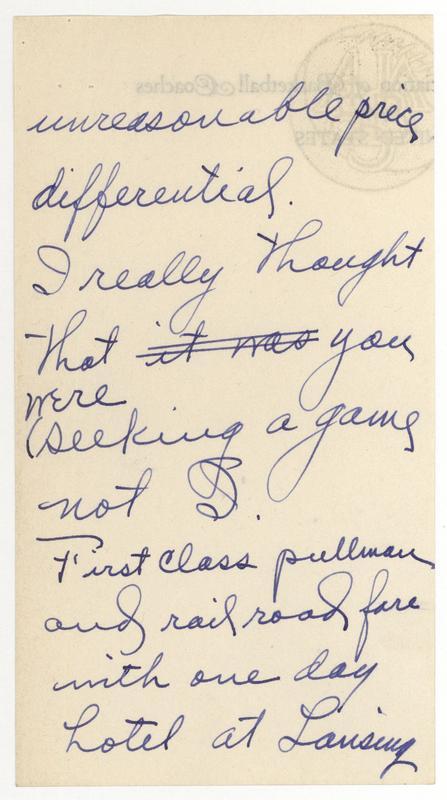 unreasonable price
differential.
I really thought
that ~~it was~~ you
were
(seeking a game
not I.
First Class pullman
and railroad fare
with one day
hotel at Lansing